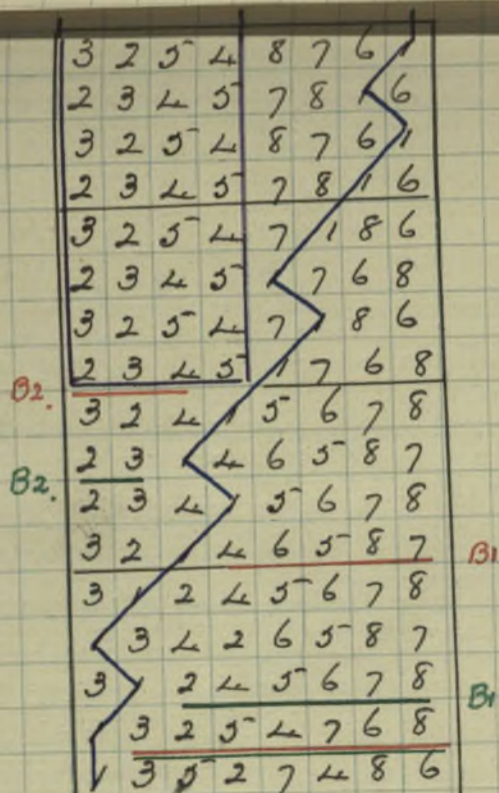 3 2 5 4 8 7 6 1
2 3 4 5 7 8 1 6
3 2 5 4 8 7 6 1
2 3 4 5 7 8 1 6
3 2 5 4 7 1 8 6
2 3 4 5 1 7 6 8
3 2 5 4 7 1 8 6
2 3 4 5 1 7 6 8
B2. 3 2 4 1 5 6 7 8
2 3 1 4 6 5 8 7
B2. 2 3 4 1 5 6 7 8
3 2 1 4 6 5 8 7 B1
3 1 2 4 5 6 7 8
1 3 4 2 6 5 8 7
3 1 2 4 5 6 7 8 B1
1 3 2 5 4 7 6 8
1 3 5 2 7 4 8 6